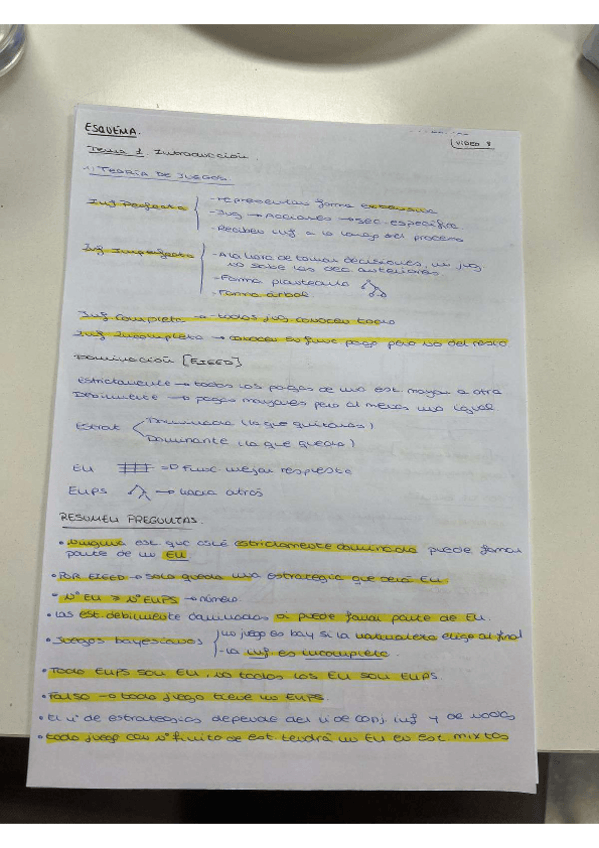 ESQUEMA.
VIDEO 1
Tema 1. Introducción.
1) TEORÍA DE JUEGOS.
Inf Perfecta
- representan forma extensiva
- Jug → Acciones → sec. específica
- Reciben inf a lo largo del proceso
Inf Imperfecta
- A la hora de tomar decisiones, un jug
no sabe las dec. anteriores
- Forma
- Forma árbol.
Inf Completa → todos jug conocen todo
Inf Incompleta → conocen su func pago pero no del resto.
Dominación [EIEED]
estrictamente → todos los pagos de una est. mayor a otra
Débilmente → pagos mayores pero al menos uno igual
Estrat
Dominada (la que quitamos)
Dominante (la que queda)
EN ⇒ Func. mejor respuesta
ENPS → hacia atrás
RESUMEN PREGUNTAS.
• Ninguna est. que esté estrictamente dominada puede formar
parte de un EN
• POR EIEED → solo queda una estrategia que será EN
• Nº EN ≥ Nº ENPS → número
• Las est. debilmente dominadas sí puede formar parte de EN.
• Juegos bayesianos
un juego es bay si la naturaleza elige al final
- la inf. es incompleta.
• Todo ENPS son EN, no todos los EN son ENPS.
• Falso → todo juego tiene un ENPS.
• El nº de estrategias depende del nº de conj. inf y de nodos
• todo juego con nº finito de est. tendrá un EN en est. mixtas